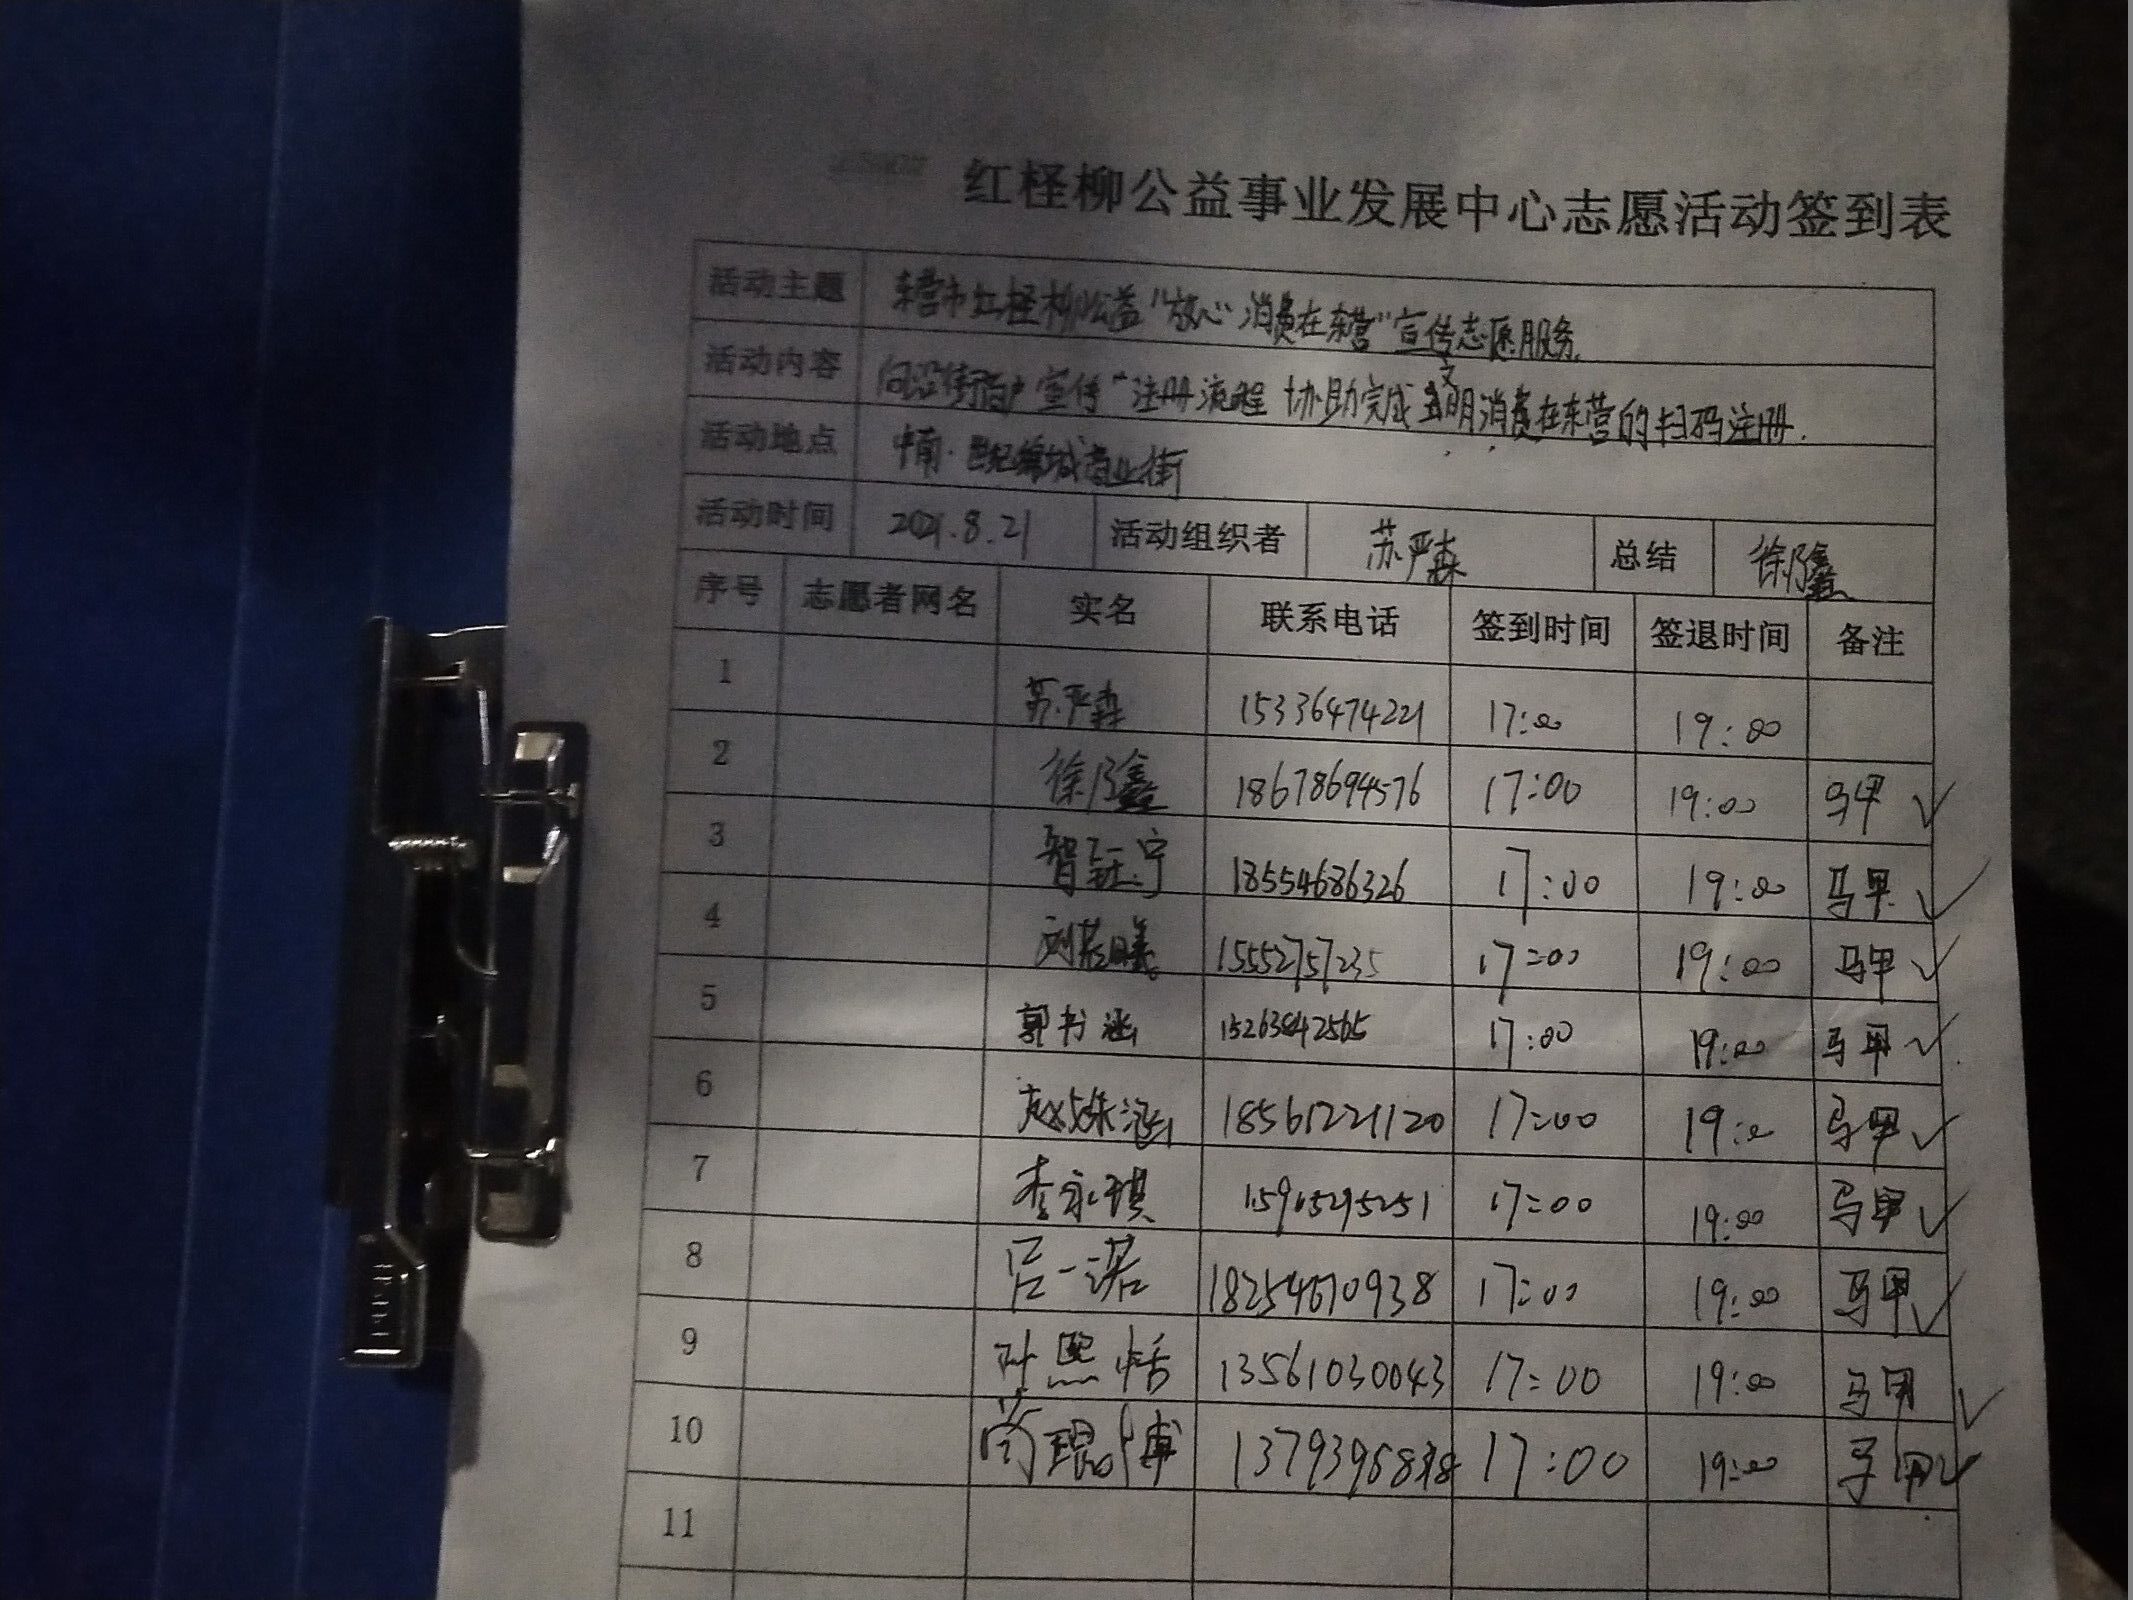 红柽柳公益事业发展中心志愿活动签到表
活动主题 东营市红柽柳公益"放心消费在东营"宣传志愿服务.
活动内容 向沿街商户宣传 注册流程 协助完成文明消费在东营的扫码注册.
活动地点 中南·世纪锦城商业街
活动时间 2021.8.21 活动组织者 苏严森 总结 徐乃鑫
序号 志愿者网名 实名 联系电话 签到时间 签退时间 备注
1 苏严森 15336474221 17:00 19:00
2 徐乃鑫 18678694576 17:00 19:00 马甲 ✓
3 智钰宁 18554686326 17:00 19:00 马甲 ✓
4 刘若曦 15552757235 17:00 19:00 马甲 ✓
5 郭书涵 15263842565 17:00 19:00 马甲 ✓
6 赵姝涵 18561221120 17:00 19:00 马甲 ✓
7 李永琪 15905295251 17:00 19:00 马甲 ✓
8 吕一诺 18254670938 17:00 19:00 马甲 ✓
9 孙熙恬 13561030043 17:00 19:00 马甲 ✓
10 尚琨博 17:00 19:00 马甲 ✓
11